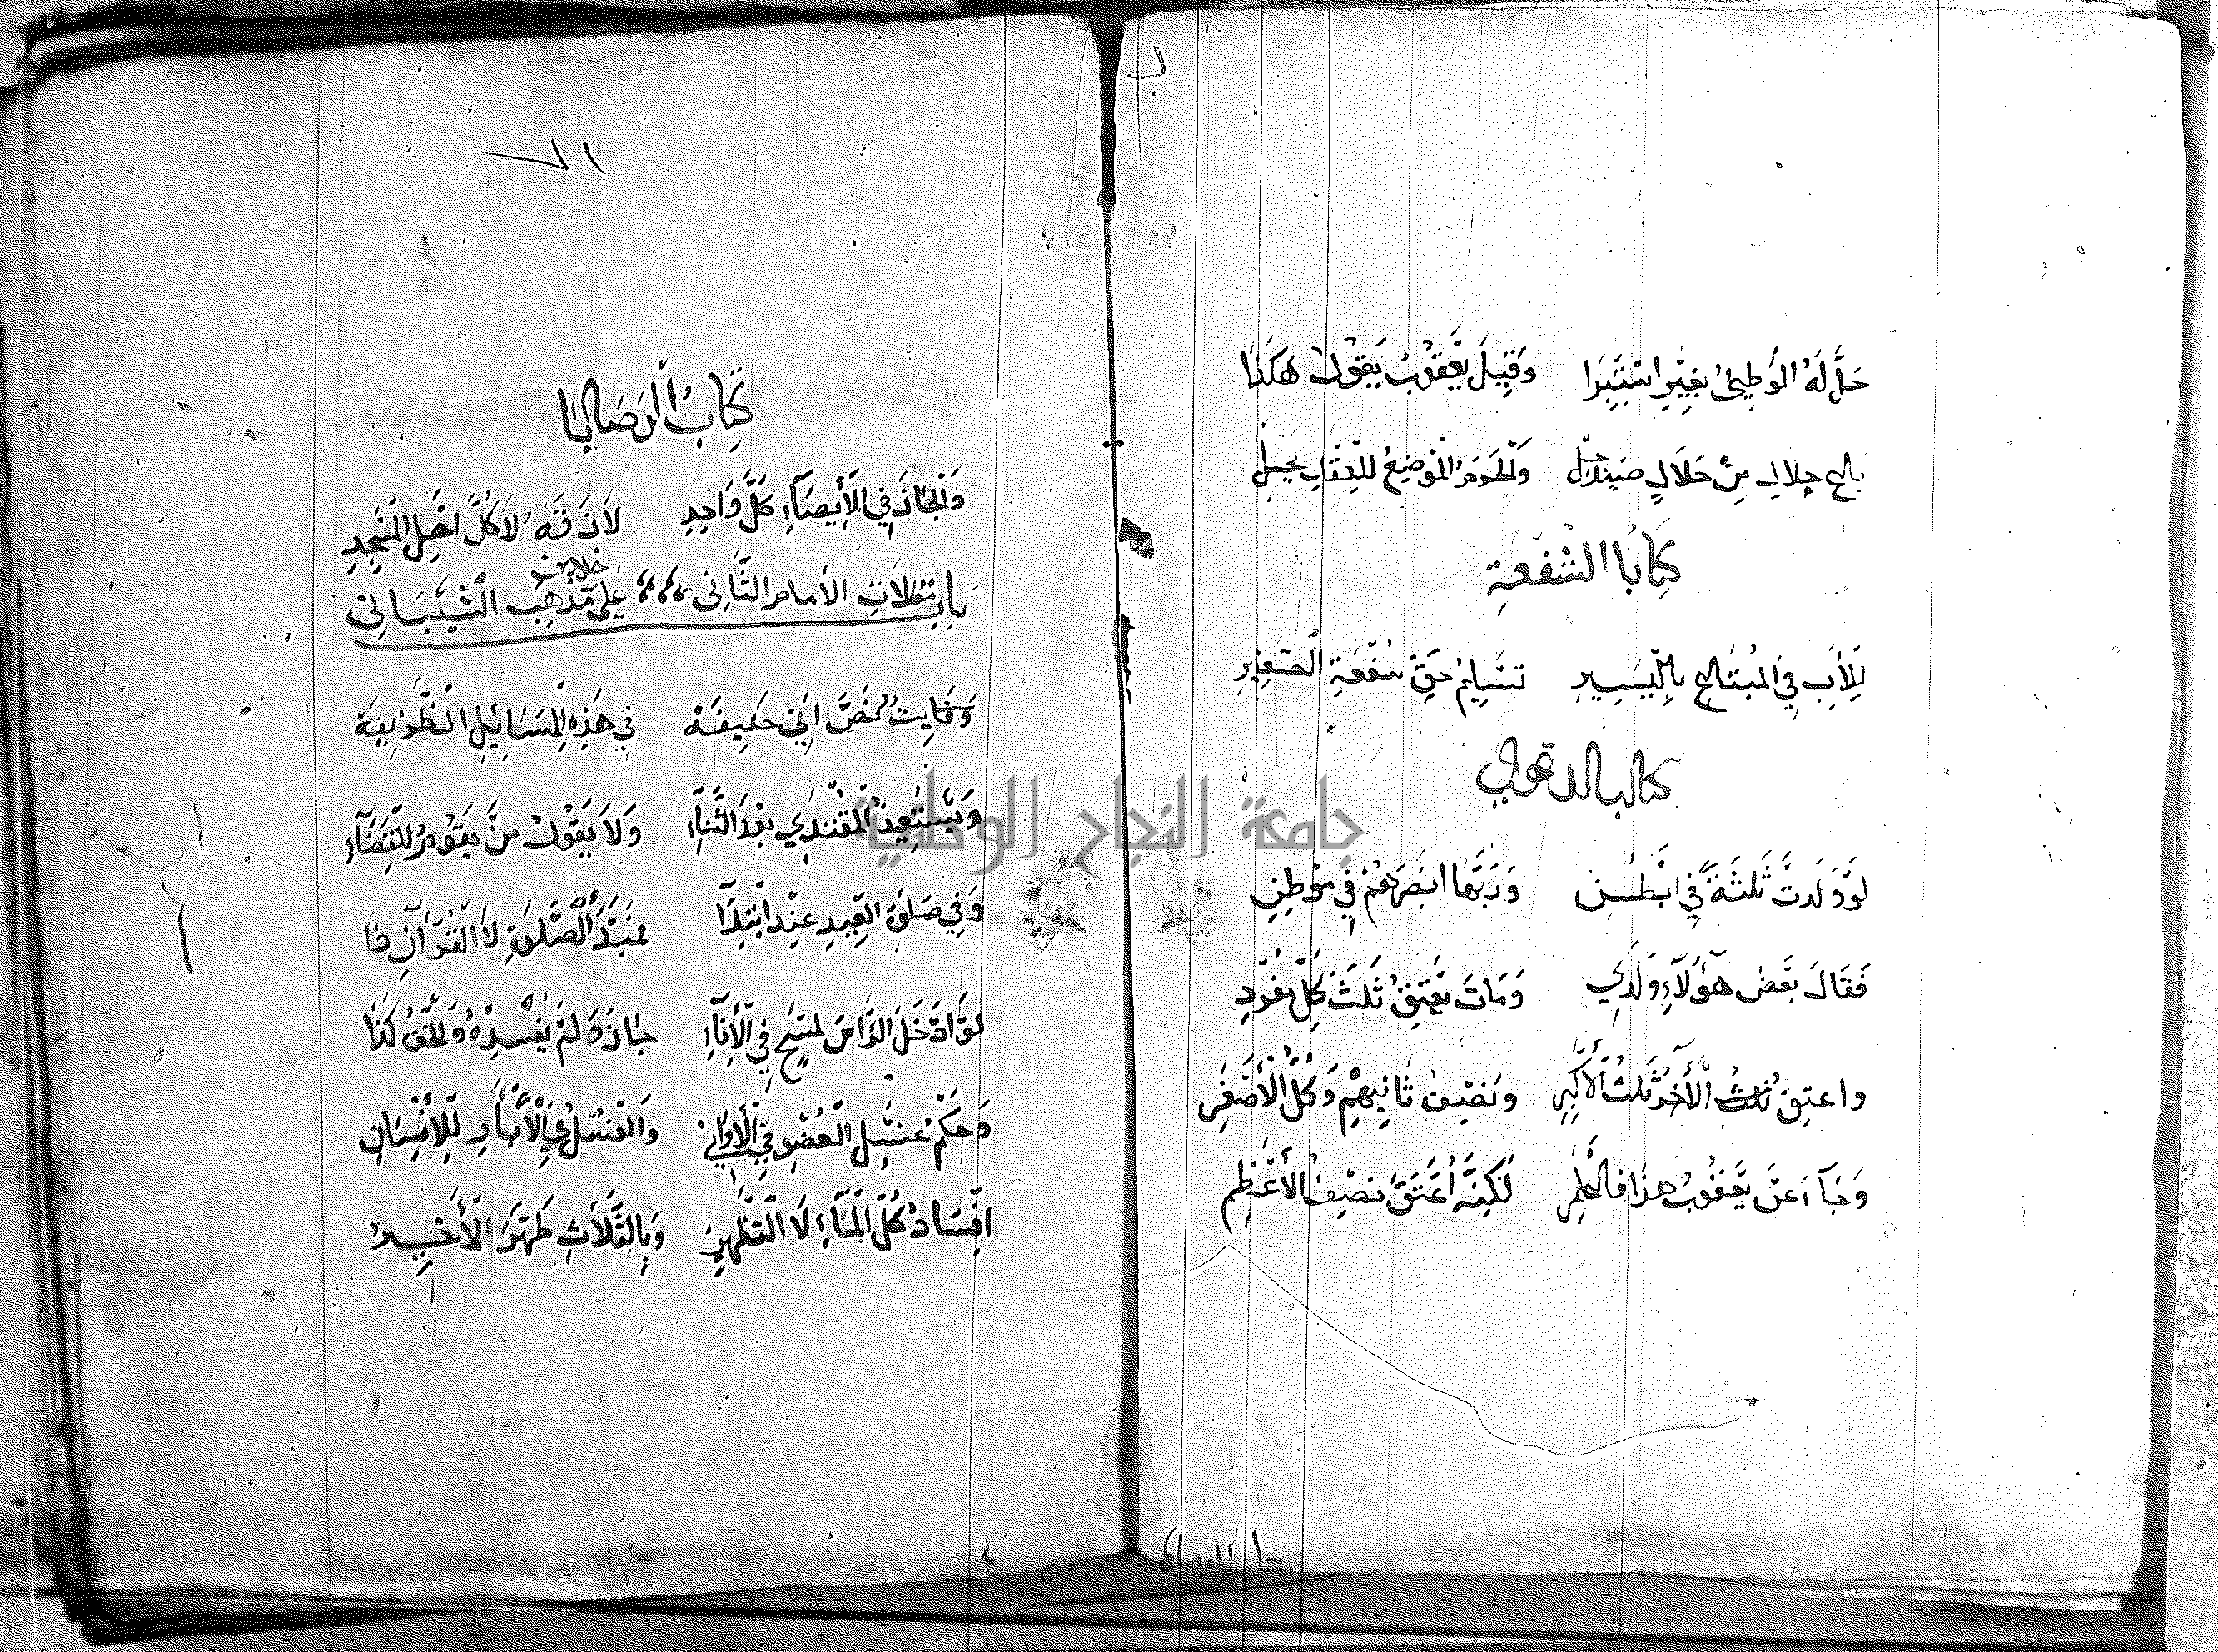 حل له الوطئ بغير استبرا وقيل يعقوب يقول هكذا
من حلال صيد والحرم الموضع للعقاب
كتاب الشفعة
للأب في المبتاع باليسير تسليم حق شفعة الصغير
كتاب الدعوي
لو ولدت ثلثة في ابطن وربما ابصرهم في موطن
فقال بعض هؤلاء ولدي ومات يعتق ثلث كل مفرد
واعتق ثلث الأخر ثلث الأكبر ونصف ثانيهم وكل الأصغر
وجاء عن يعقوب هذا فاعلم لكنه أعتق نصف الأعظم
٧١
كتاب الوصايا
والجار في الأيصاء كل واحد لازقه لا كل اهل المسجد
باب مقالات الأمام الثاني على خلاف مذهب الشيباني
نص ابي حنيفه في هذه المسائل الظريفة
ويستعيذ المقتدي بعد الثناء ولا يقول من يقوم للقضاء
وفي صلوة العيد عند ابتدا مبدأ الصلوة لا القرآن ذا
لو ادخل الراس لمسح في الأناء جاز ولم يفسده والحق كذا
وحكم غسل العضو في الأواني والغسل في الأبار للأنسان
افساد كل الماء لا التطهير وبالثلاث طهر الأخير
جامعة النجاح الوطنية